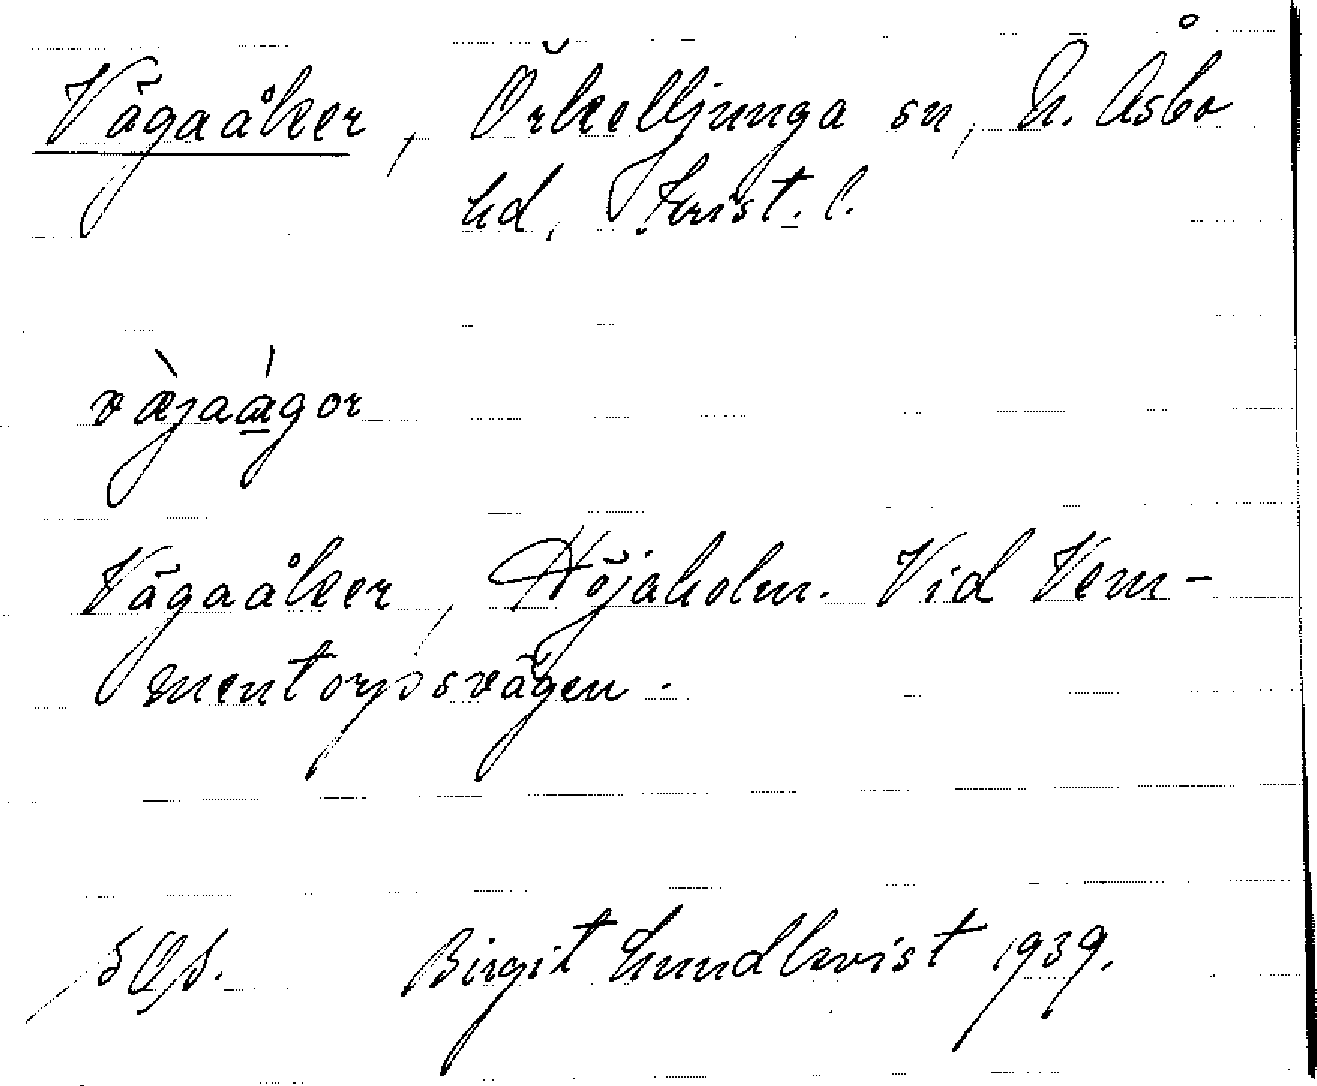 Vägaåker, Örkelljunga sn, N. Åsbo
hd, Krist. l.
væ̀jaágor
Vägaåker, Höjaholm. Vid Vem-
mentorpsvägen.
Birgit Lundkvist 1939.